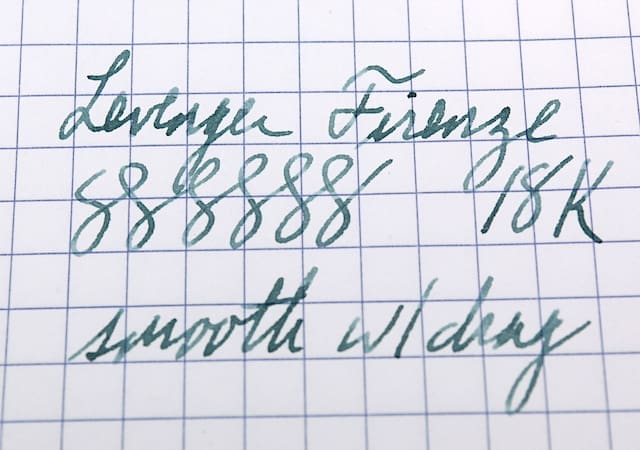 Levenger Firenze
888888 18K
smooth w/ drag